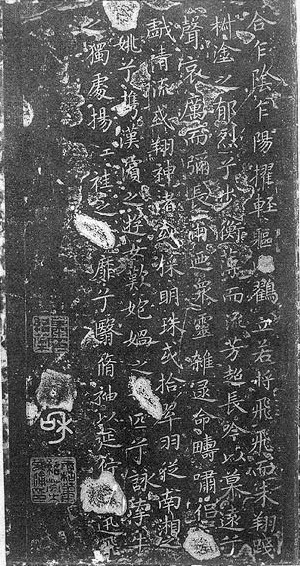 合乍陰乍陽擢輕軀鶴立若將飛飛而未翔踐
椒塗之郁烈兮步蘅薄而流芳超長吟以慕遠兮
聲哀厲而彌長爾迺眾靈雜遝命疇嘯侶
戲清流或翔神渚或採明珠或拾翠羽從南湘之
姚兮攜漢濱之遊女歎媧之匹兮詠牽牛
之獨處揚袿之靡兮翳脩袖以延佇迅飛